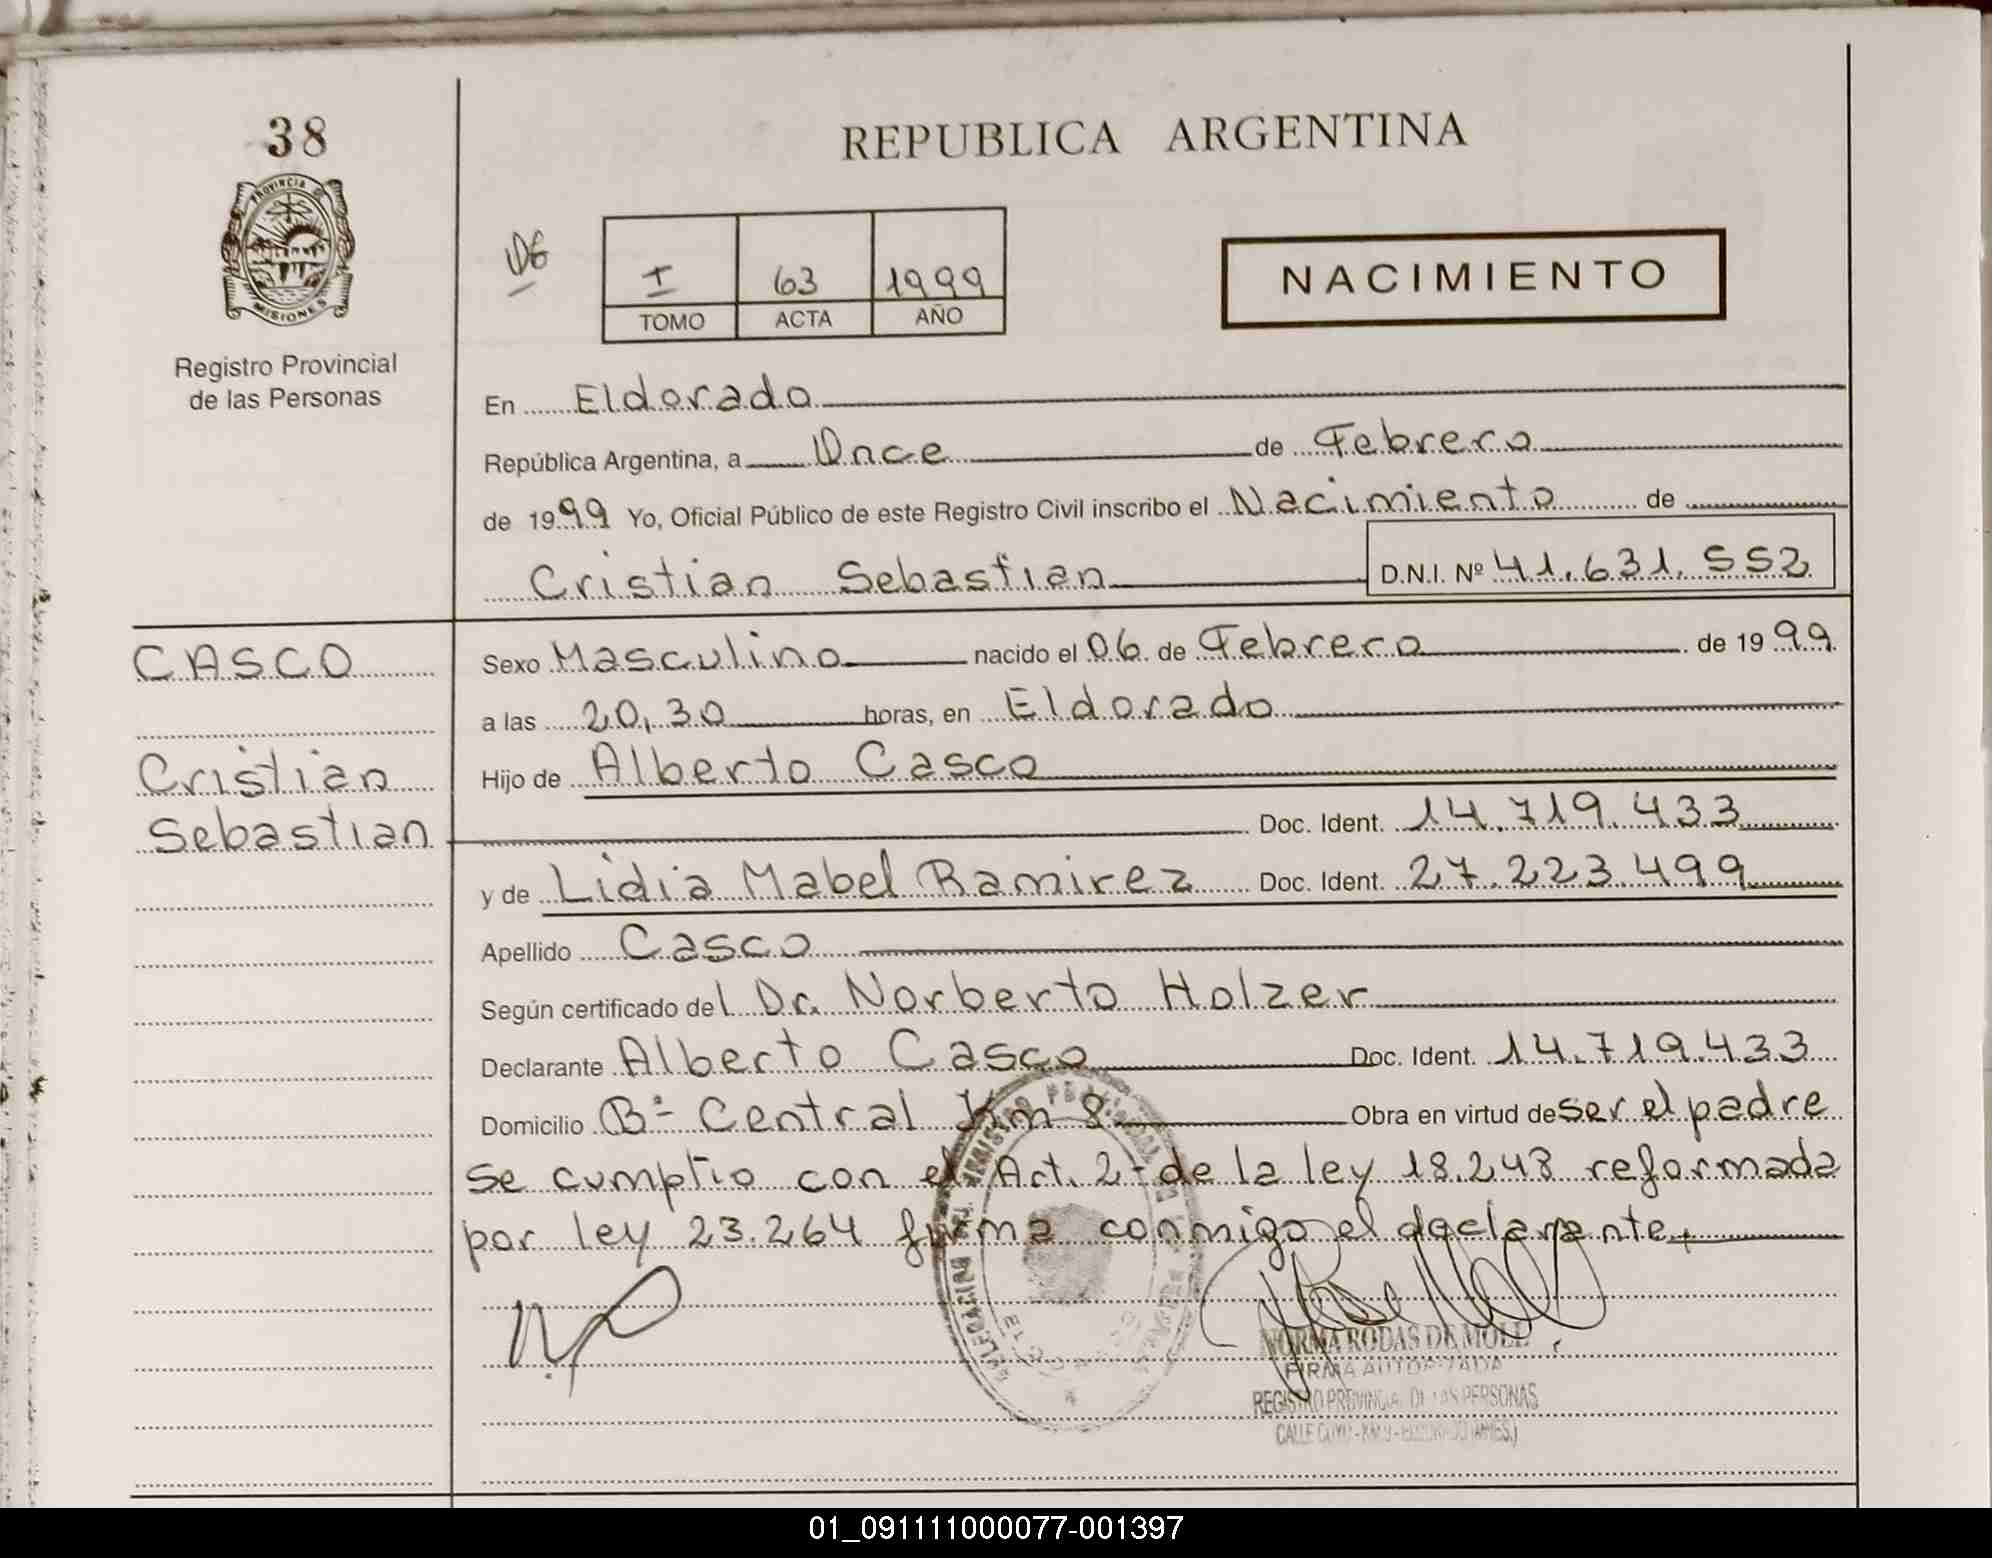 38
REPUBLICA ARGENTINA
PROVINCIA DE
MISIONES
Registro Provincial
de las Personas
I 63 1999
TOMO ACTA AÑO
NACIMIENTO
En Eldorado
República Argentina, a Once de Febrero
de 1999 Yo, Oficial Público de este Registro Civil inscribo el Nacimiento de
Cristian Sebastian D.N.I. Nº 41.631.552
CASCO
Cristian
Sebastian
Sexo Masculino nacido el 06 de Febrero de 1999
a las 20,30 horas, en Eldorado
Hijo de Alberto Casco
Doc. Ident. 14.719.433
y de Lidia Mabel Ramirez Doc. Ident. 27.223.499
Apellido Casco
Según certificado del Dr. Norberto Holzer
Declarante Alberto Casco Doc. Ident. 14.719.433
Domicilio Bº Central Km 8 Obra en virtud de ser el padre
se cumptio con el Art. 2- de la ley 18.248 reformada
por ley 23.264 firma conmigo el declarante.
NORMA RODAS DE MOLL
FIRMA AUTORIZADA
REGISTRO PROVINCIAL DE LAS PERSONAS
01_091111000077-001397